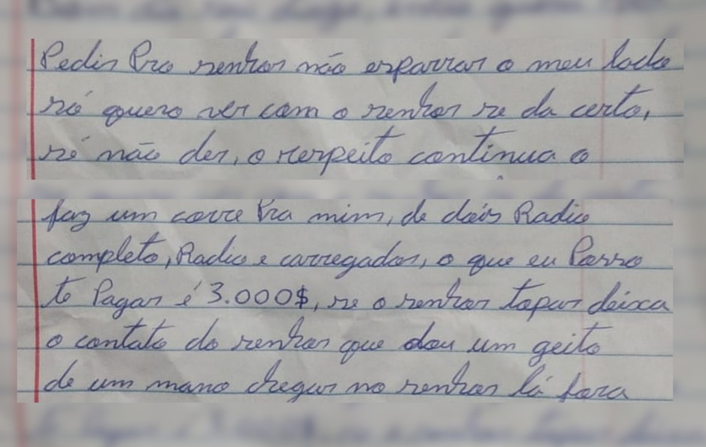 Pedir Pro senhor não esparrar o meu lado
só quero ver com o senhor se da certo,
sé não der, o respeito continua o
faz um corre Pra mim, de dois Radio
completo, Radio e carregador, o que eu Posso
te Pagar é 3.000$, se o senhor topar deixa
o contato do senhor que dou um geito
de um mano chegar no senhor lá fora